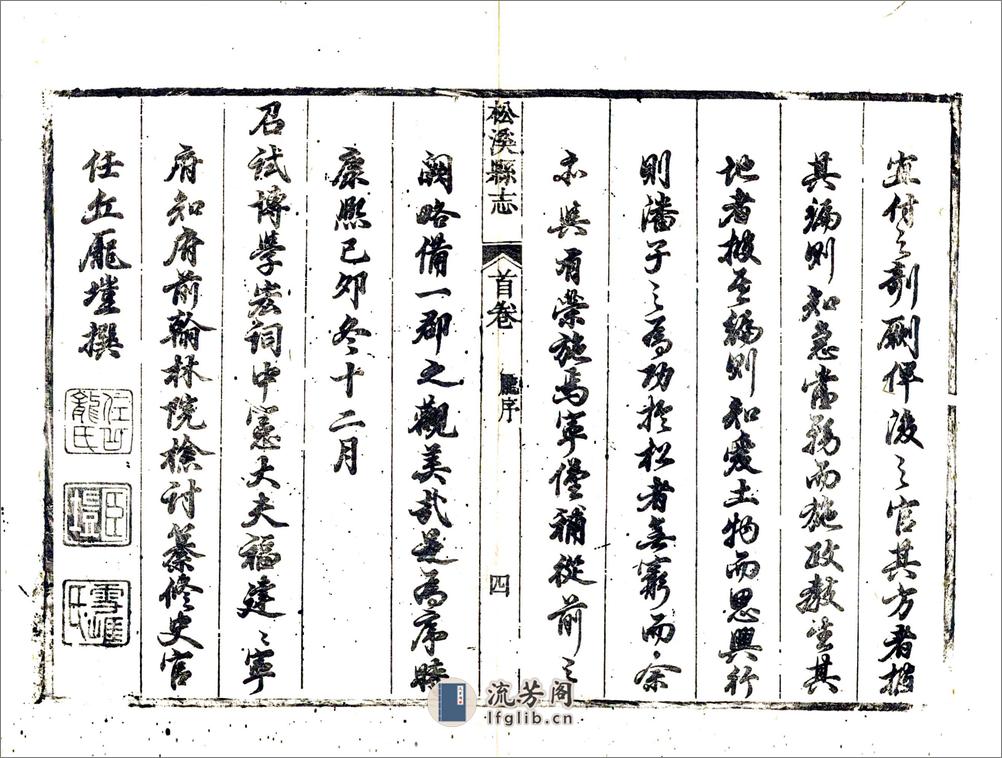 宜付之剞劂俾後之官其方者披
其編則知急當務而施政教生其
地者披是編則知愛土物而思興行
則潘子之為功於松者無窮而余
亦與有榮施焉寧僅補從前之
松溪縣志 首卷 龐序 四
闕略備一郡之觀美哉是為序時
康熙己卯冬十二月
召試博學宏詞中憲大夫福建建寧
府知府前翰林院檢討纂修史官
任丘龐塏撰
任丘龐氏
臣塏
雪崖氏
流芳阁
lfglib.cn